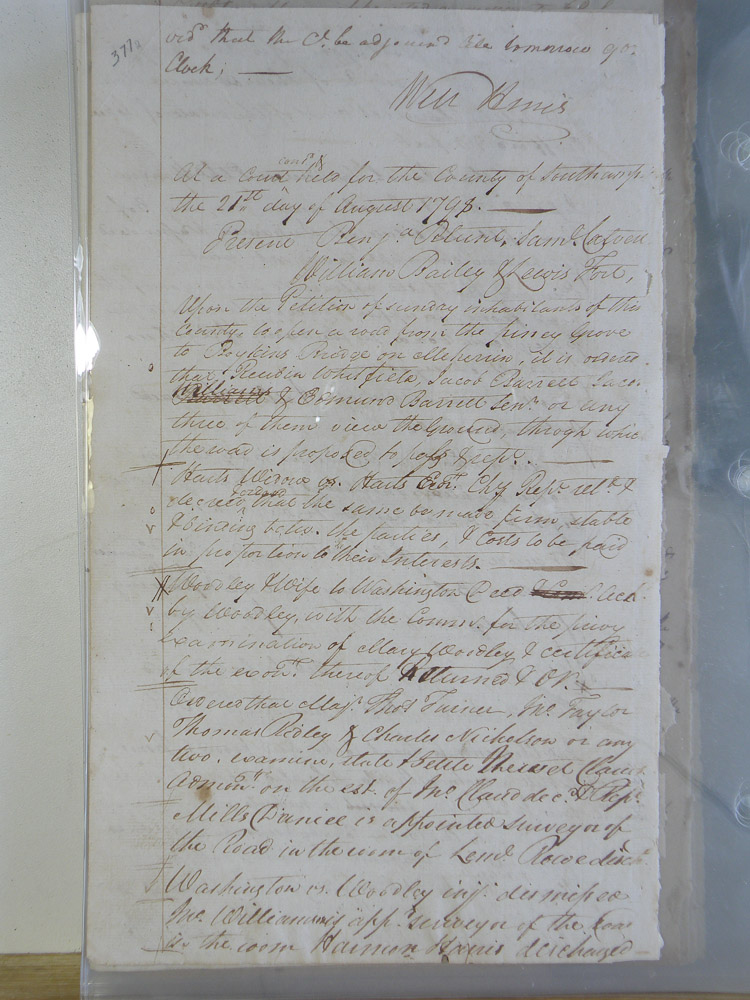 377
ord.d that the Ct. be adjourn'd till tomorrow 9 o:
Clock;
Will Hines
At a Court cont.d & held for the County of Southamp
the 21st day of August 1798.
Present Benj.a Blunt, Sam.l Calvert
William Bailey & Lewis Fort,
Upon the Petition of sundry inhabitants of this
County, to open a road from the Piney Grove
to Boykins Bridge on Meherrin, it is ordered
that, Reubin Whitfield, Jacob Barrett, Jacob
Williams & Edmund Barrett Sen.r or any
three of them view the Ground, through which
the road is proposed to pass & rep.t.
Harts Widow vs. Harts Chy Rep.t ret.d &
decreed that the same be made firm, stable
& binding betw. the parties, & Costs to be paid
in proportion to their Interests.
Woodley & Wife to Washington Deed Ack.d
by Woodley, with the Comm.n for the privy
examination of Mary Woodley & certificate
of the exon. thereof Returned & OR.
Ordered that Maj.r Tho.s Turner, Jno. Taylor
Thomas Ridley & Charles Nicholson or any
two, examine, state & settle Claud
Admon. on the est. of Jno. Claud dec.d & Rep.t
Mills Daniel is appointed surveyor of
the Road in the room of Lem.l Rowe disch.d
Washington vs. Woodley inj.n dismissed
Jno. Williamson app.d surveyor of the road
in the room Harmon Harris discharged